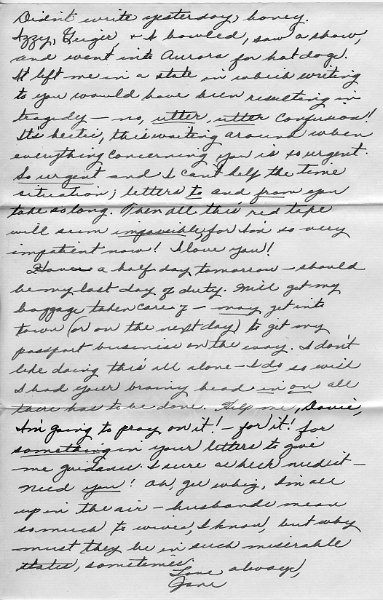 Didn't write yesterday, honey.
Izzy, Geigie + I bowled, saw a show,
and went into Aurora for hot dogs!
It left me in a state in which writing
to you would have been resulting in
tragedy — no, utter, utter confusion!
Its hectic, this waiting around when
everything concerning you is so urgent.
So urgent and I can't help the time
situation; letters to and from you
take so long. Then all this red tape
will seem impossible, for I'm so very
impatient now! I love you!
Have a half day tomorrow — should
be my last day of duty. Will get my
baggage taken care of — may get into
town (or on the next day) to get my
passport business on the way. I don't
like doing this all alone — I do so wish
I had your brainy head in on all
have has to be done. Help me, Davie,
I'm going to pray on it! — for it! for
something in your letters to give
me guidance. I sure as heck need it —
need you! Oh, gee whiz, I'm all
up in the air — husbands mean
so much to wives, I know, but why
must they be in such miserable
states, sometimes.
Love always,
Jane